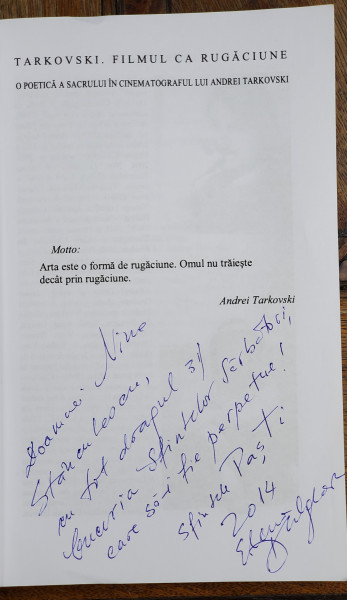 TARKOVSKI. FILMUL CA RUGĂCIUNE
O POETICĂ A SACRULUI ÎN CINEMATOGRAFUL LUI ANDREI TARKOVSKI
Motto:
Arta este o formă de rugăciune. Omul nu trăiește
decât prin rugăciune.
Andrei Tarkovski
Doamnei Nina
Stănculescu,
cu tot dragul și
bucuria Sfintelor Sărbători,
care să-i fie perpetue!
Sfintele Paști
2014